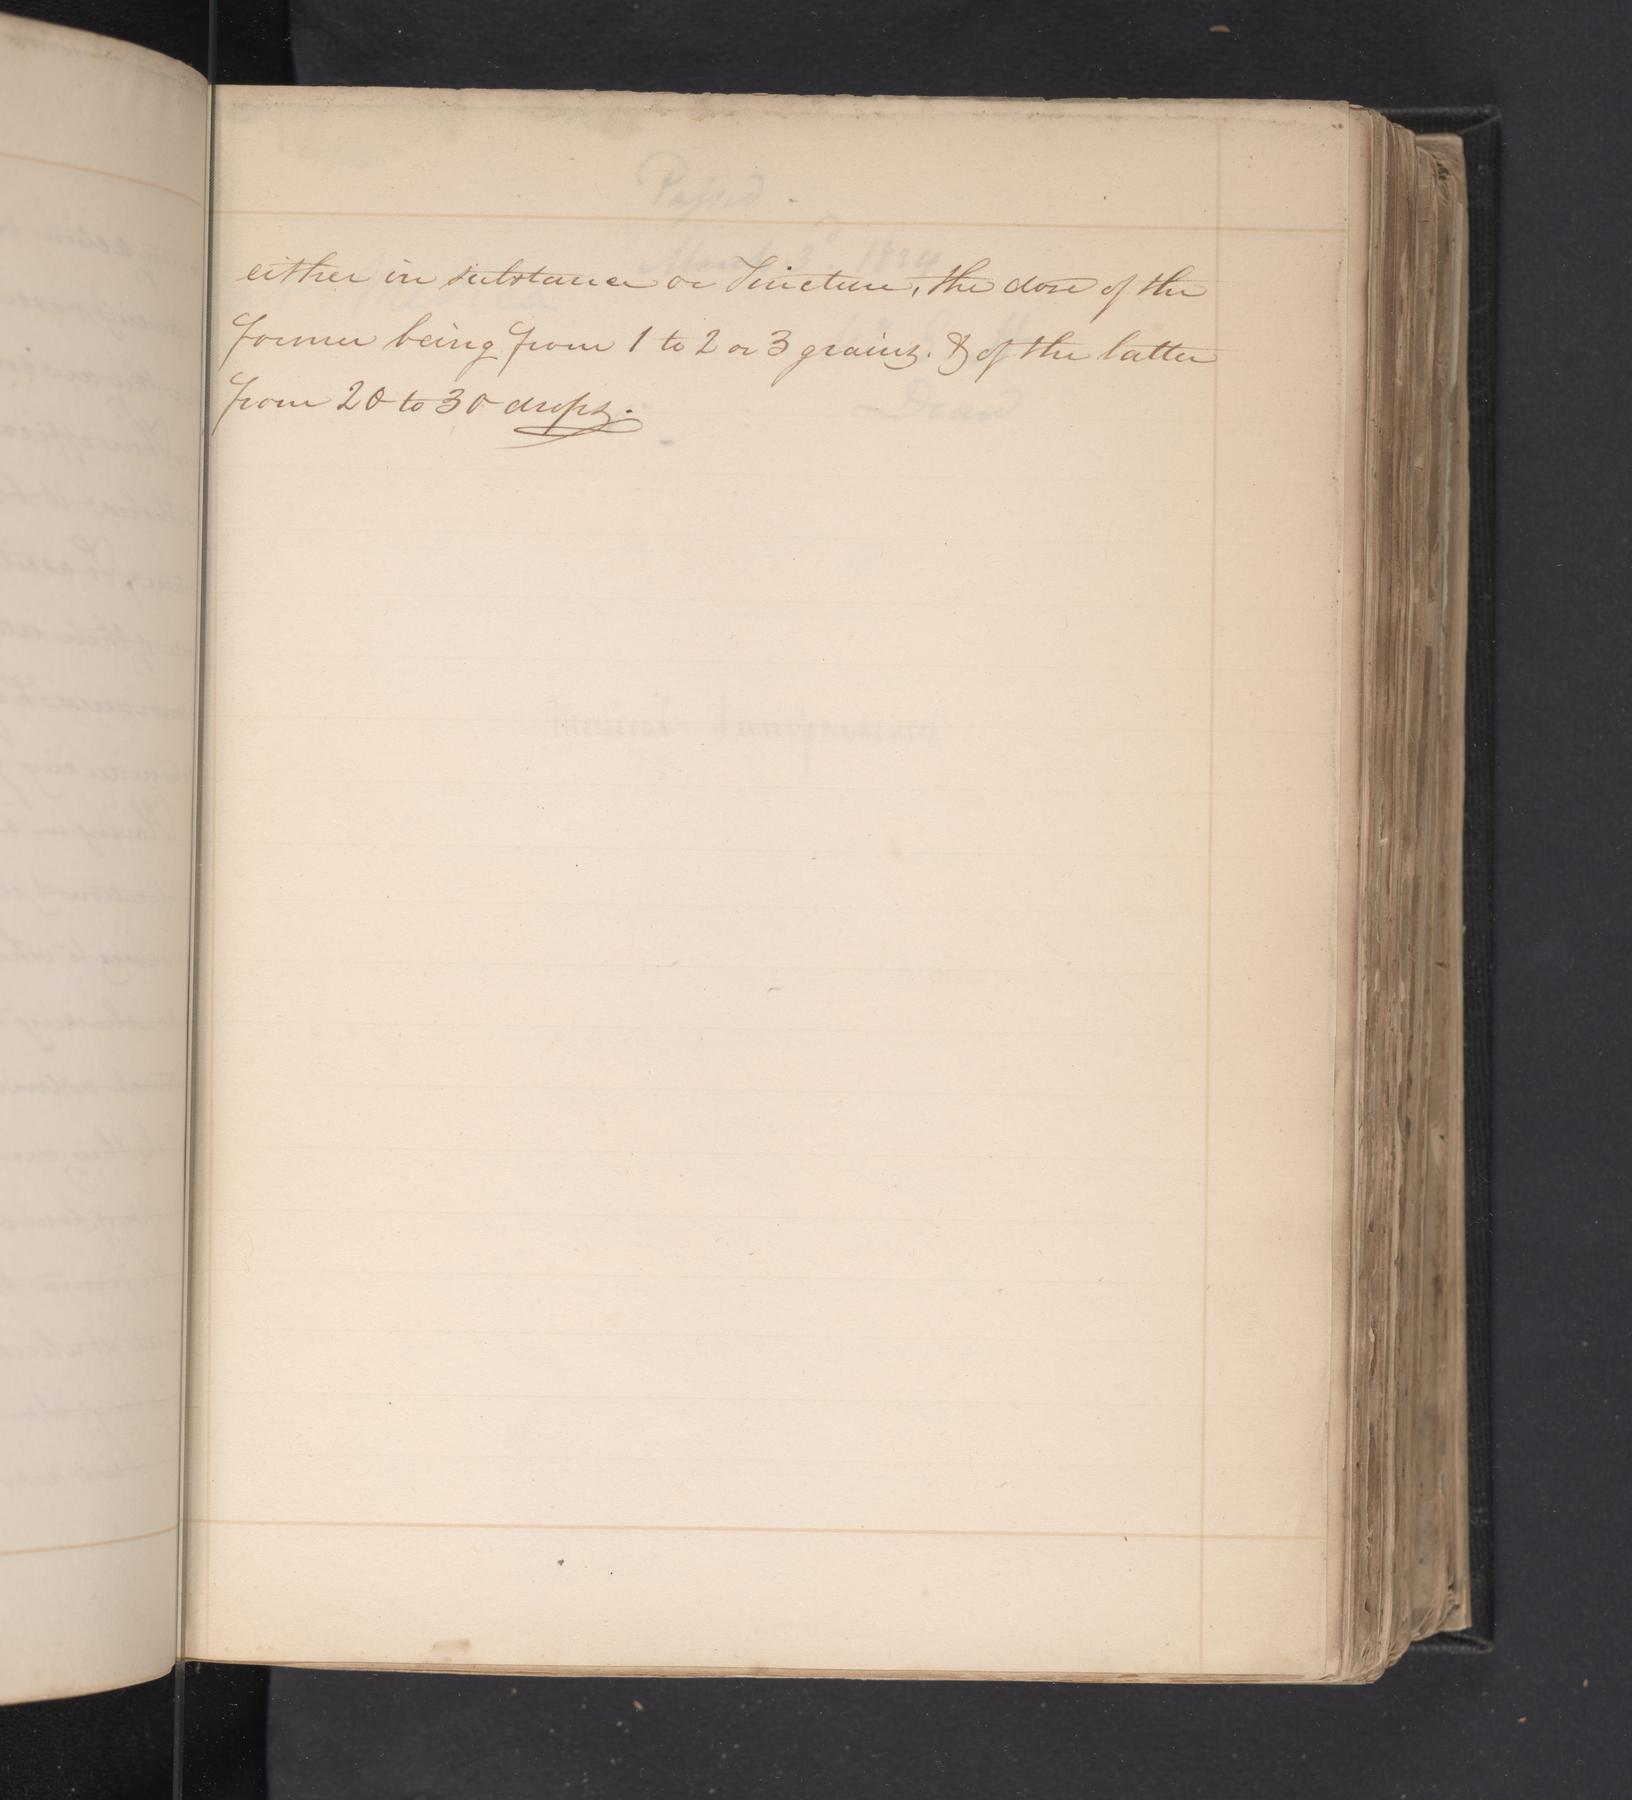 either in substance or Tincture, the dose of the
former being from 1 to 2 or 3 grains. & of the latter
from 20 to 30 drops.